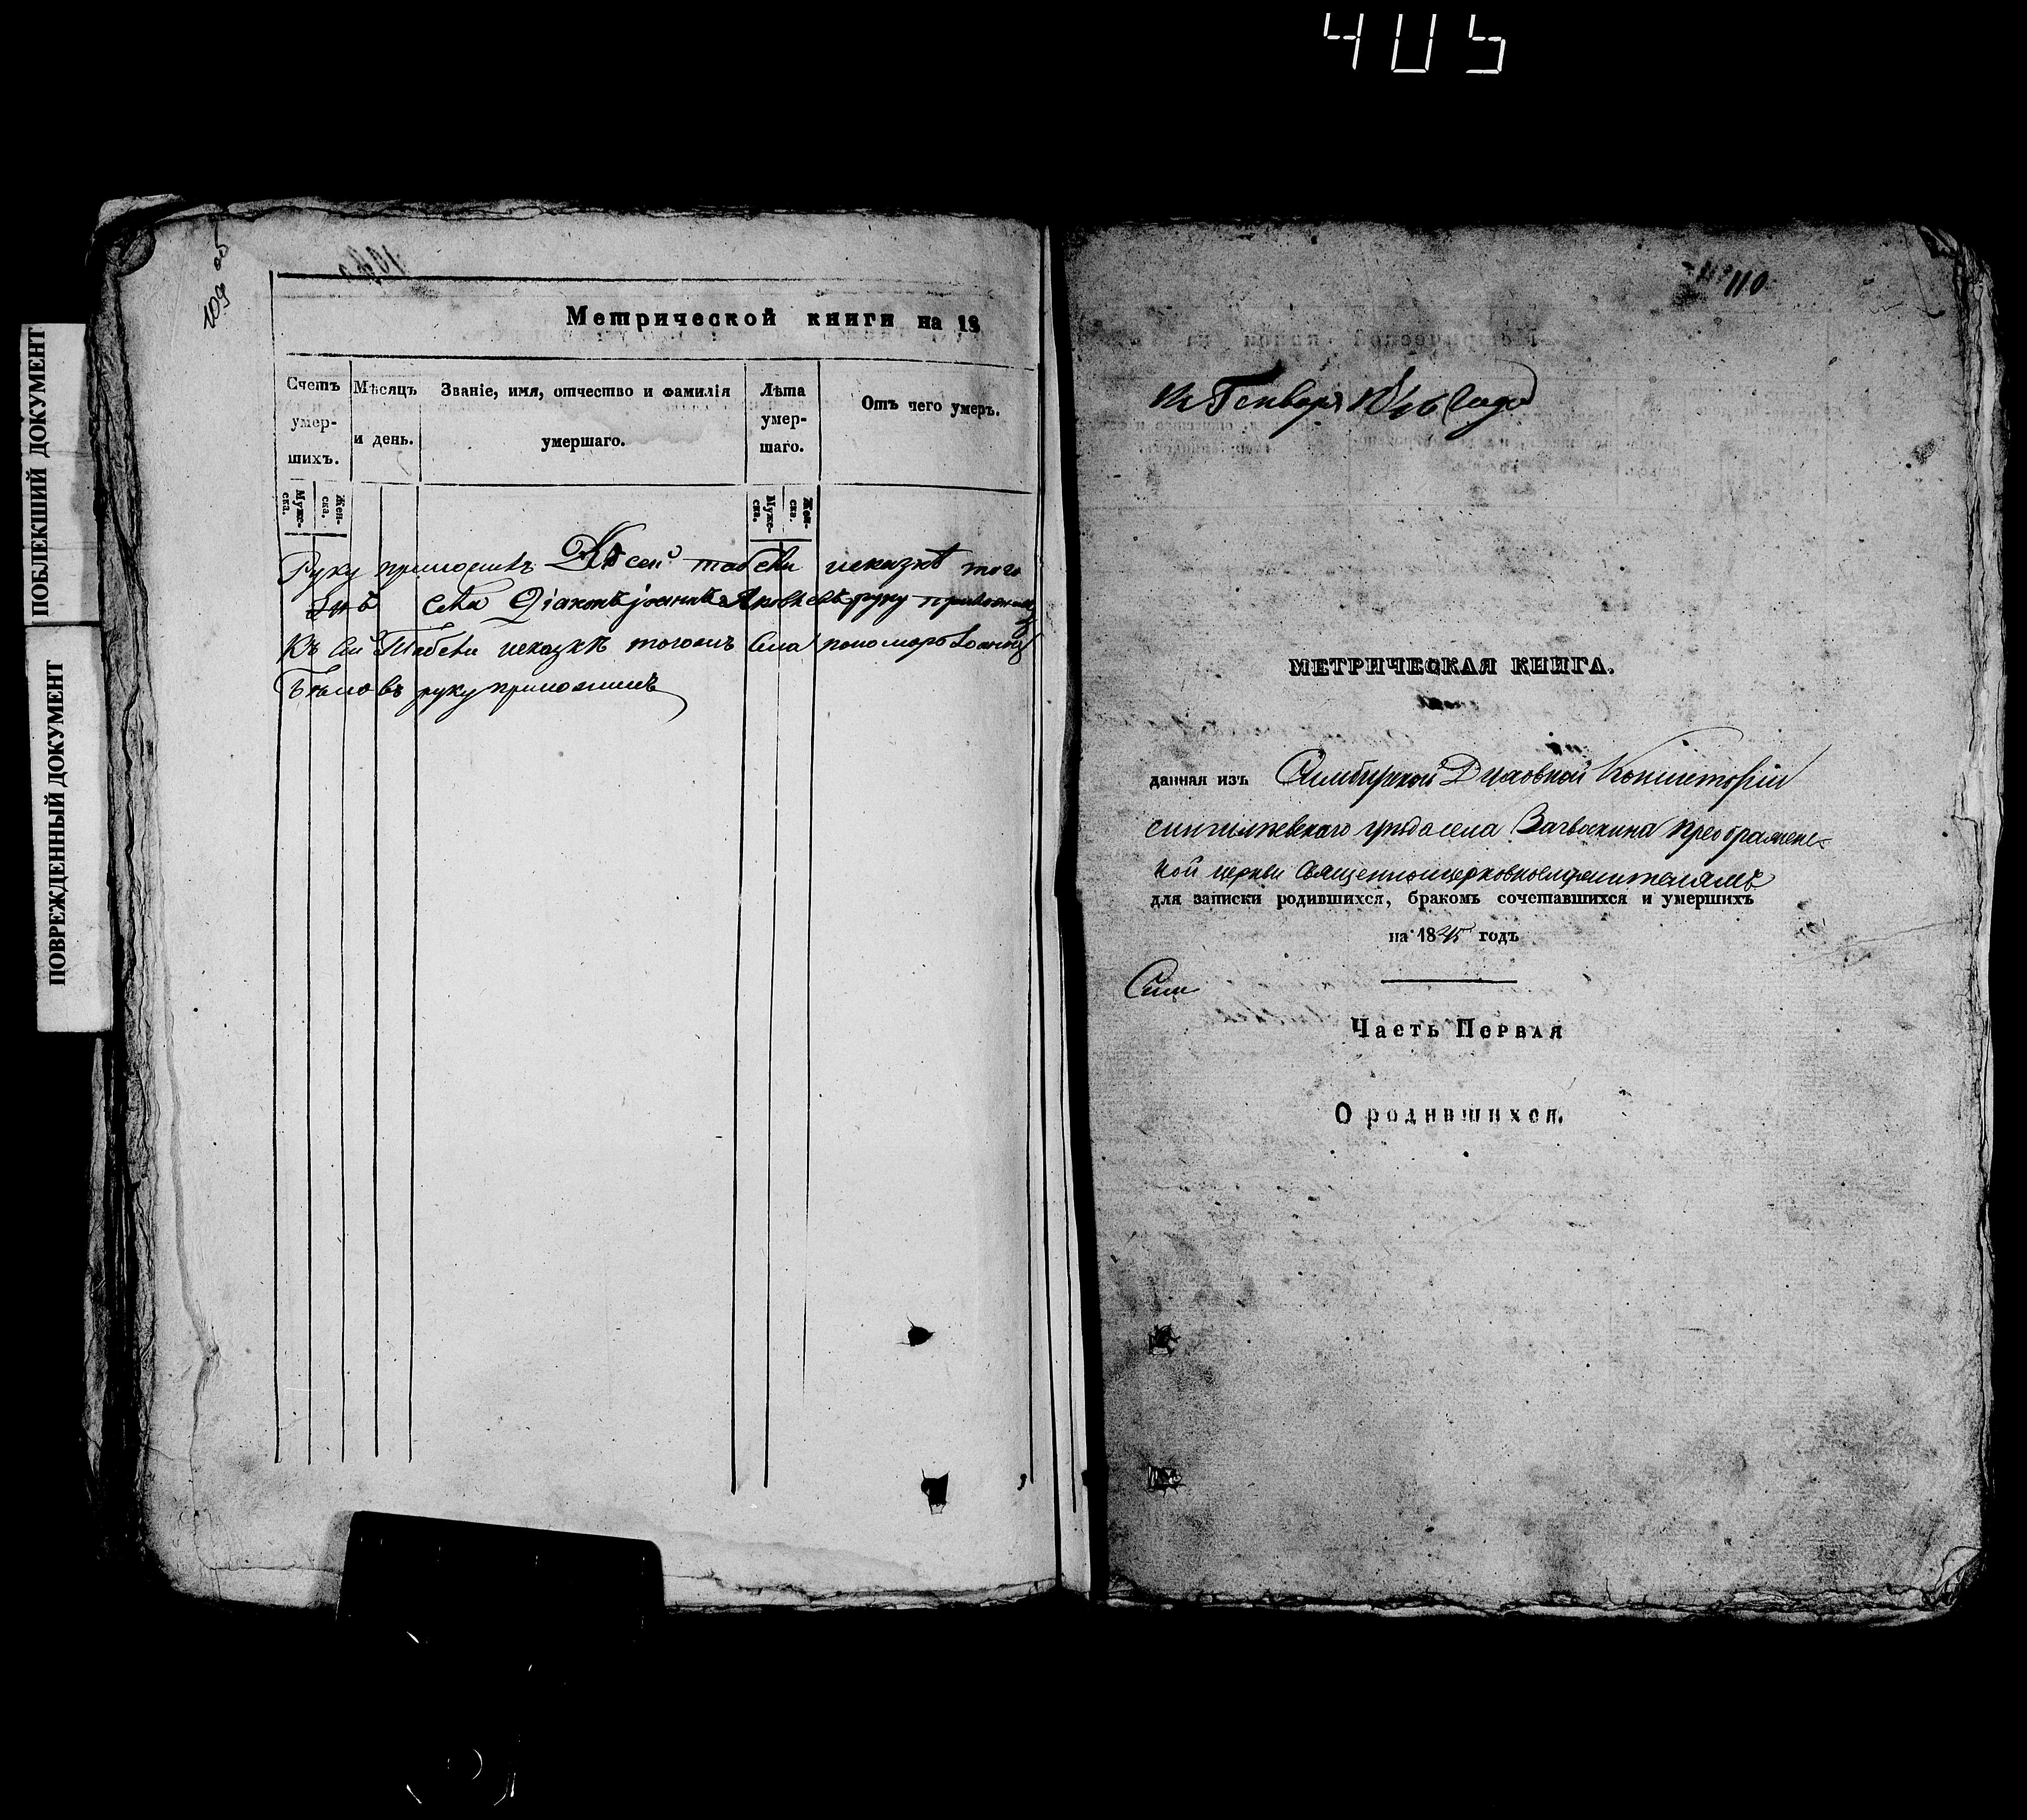 405
ПОБЛЕКШИЙ ДОКУМЕНТ
ПОВРЕЖДЕННЫЙ ДОКУМЕНТ
109 об
Метрической книги на 18
Счетъ умер-шихъ.
Мѣсяцъ и день.
Званіе, имя, отчество и фамилія умершаго.
Лѣта умер-шаго.
Отъ чего умеръ.
Мужс-ка.
Жен-ска.
Мужс-ка.
Жен-ска.
Руку приложилъ Къ сей табели того
села Діаконъ руку приложилъ
Къ сей Табели тогожъ села пономарь Іоаннъ
руку приложилъ
110
Генваря 1846 года
МЕТРИЧЕСКАЯ КНИГА.
данная изъ Симбирской Духовной Консисторіи
села Преображенс-
кой церкви Священноцерковнослужителямъ
для записки родившихся, бракомъ сочетавшихся и умершихъ
на 1845 годъ
Часть Первая
О родившихся.